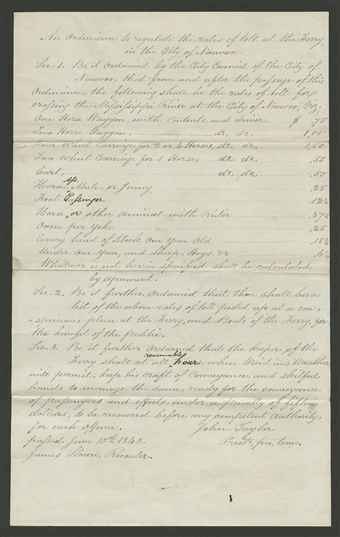 An Ordinance to regulate the rates of toll at the Ferry
in the City of Nauvoo.
Sec. 1. Be it Ordained by the City Council of the City of
Nauvoo, that from and after the passage of this
Ordinance, the following shall be the rates of toll for
crossing the Mississippi River at the City of Nauvoo, Viz;
One Horse Waggon, with contents, and driver. $ .75
Two Horse Waggon, do. do. 1,00
Four Wheel Carriage, for 2 or 4 Horses, do. do. 1,00
Two Wheel Carriage for 1 Horse. do. .50
Cart, do. do. .50
Horse, Ass, Mule, or Jenny .25
Foot Passenger .12½
Horse, or other animal with Rider .37½
Oxen per Yoke .25
Every kind of Stock One Year Old .12½
Under One Year, and Sheep, Hogs, &c .6¼
Whatever is not herein specified shall be calculated
by agreement.
Sec. 2. Be it further Ordained that there shall be a
list of the above rates of toll posted up at a con-
spicuous place at the Ferry, and Boats of the Ferry, for
the benefit of the public.
Sec. 3. Be it further Ordained that the keeper of the
Ferry shall at all reasonable hours, when Wind and Weather
will permit, keep his craft of Conveyance and skilful
hands to manage the same, ready for the conveyance
of passengers and effects, under a penalty of fifty
dollars, to be recovered before any competent authority,
for each offence. John Taylor
passed, June 10th 1843. Prest. pro. tem.
James Sloan, Recorder.